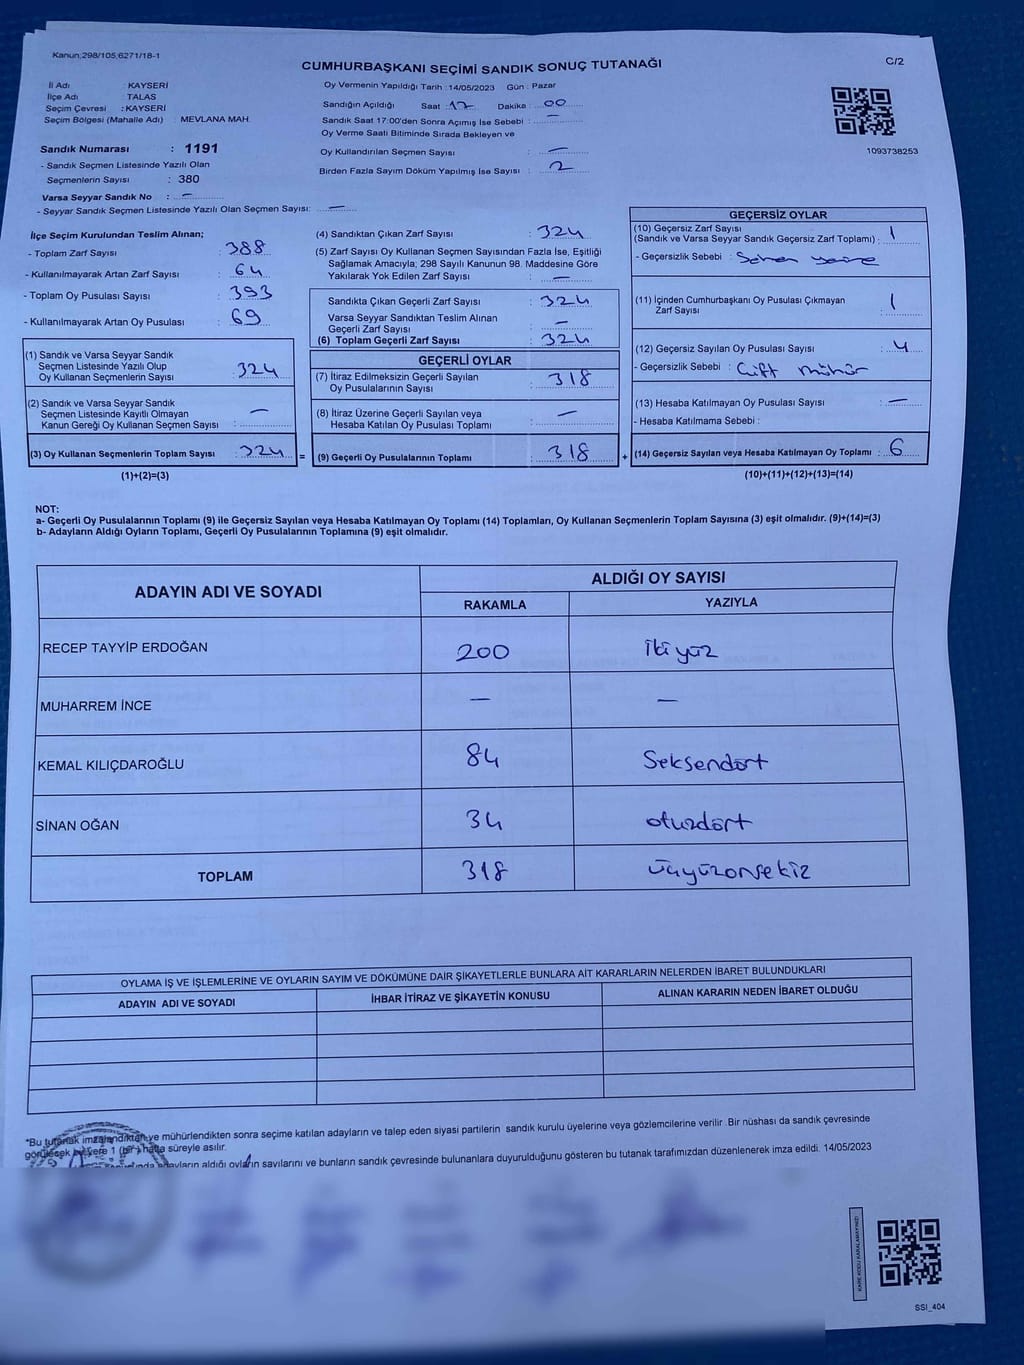 Kanun;298/105;6271/18-1
CUMHURBAŞKANI SEÇİMİ SANDIK SONUÇ TUTANAĞI
C/2
İl Adı : KAYSERİ
İlçe Adı : TALAS
Seçim Çevresi : KAYSERİ
Seçim Bölgesi (Mahalle Adı) : MEVLANA MAH.
Sandık Numarası : 1191
- Sandık Seçmen Listesinde Yazılı Olan
Seçmenlerin Sayısı : 380
Varsa Seyyar Sandık No : —
- Seyyar Sandık Seçmen Listesinde Yazılı Olan Seçmen Sayısı: —
Oy Vermenin Yapıldığı Tarih : 14/05/2023 Gün : Pazar
Sandığın Açıldığı Saat : 17 Dakika : 00
Sandık Saat 17:00'den Sonra Açımış İse Sebebi : —
Oy Verme Saati Bitiminde Sırada Bekleyen ve
Oy Kullandırılan Seçmen Sayısı : —
Birden Fazla Sayım Döküm Yapılmış İse Sayısı : 2
1093738253
İlçe Seçim Kurulundan Teslim Alınan;
- Toplam Zarf Sayısı : 388
- Kullanılmayarak Artan Zarf Sayısı : 64
- Toplam Oy Pusulası Sayısı : 393
- Kullanılmayarak Artan Oy Pusulası : 69
(1) Sandık ve Varsa Seyyar Sandık
Seçmen Listesinde Yazılı Olup
Oy Kullanan Seçmenlerin Sayısı : 324
(2) Sandık ve Varsa Seyyar Sandık
Seçmen Listesinde Kayıtlı Olmayan
Kanun Gereği Oy Kullanan Seçmen Sayısı : —
(3) Oy Kullanan Seçmenlerin Toplam Sayısı : 324 =
(1)+(2)=(3)
(4) Sandıktan Çıkan Zarf Sayısı : 324
(5) Zarf Sayısı Oy Kullanan Seçmen Sayısından Fazla İse, Eşitliği
Sağlamak Amacıyla; 298 Sayılı Kanunun 98. Maddesine Göre
Yakılarak Yok Edilen Zarf Sayısı : —
Sandıkta Çıkan Geçerli Zarf Sayısı : 324
Varsa Seyyar Sandıktan Teslim Alınan
Geçerli Zarf Sayısı : —
(6) Toplam Geçerli Zarf Sayısı : 324
GEÇERLİ OYLAR
(7) İtiraz Edilmeksizin Geçerli Sayılan
Oy Pusulalarının Sayısı : 318
(8) İtiraz Üzerine Geçerli Sayılan veya
Hesaba Katılan Oy Pusulası Toplamı : —
(9) Geçerli Oy Pusulalarının Toplamı : 318 +
GEÇERSİZ OYLAR
(10) Geçersiz Zarf Sayısı
(Sandık ve Varsa Seyyar Sandık Geçersiz Zarf Toplamı) : 1
- Geçersizlik Sebebi :
(11) İçinden Cumhurbaşkanı Oy Pusulası Çıkmayan
Zarf Sayısı : 1
(12) Geçersiz Sayılan Oy Pusulası Sayısı : 4
- Geçersizlik Sebebi : Çift mühür
(13) Hesaba Katılmayan Oy Pusulası Sayısı : —
- Hesaba Katılmama Sebebi :
(14) Geçersiz Sayılan veya Hesaba Katılmayan Oy Toplamı : 6
(10)+(11)+(12)+(13)=(14)
NOT:
a- Geçerli Oy Pusulalarının Toplamı (9) ile Geçersiz Sayılan veya Hesaba Katılmayan Oy Toplamı (14) Toplamları, Oy Kullanan Seçmenlerin Toplam Sayısına (3) eşit olmalıdır. (9)+(14)=(3)
b- Adayların Aldığı Oyların Toplamı, Geçerli Oy Pusulalarının Toplamına (9) eşit olmalıdır.
ADAYIN ADI VE SOYADI
ALDIĞI OY SAYISI
RAKAMLA YAZIYLA
RECEP TAYYİP ERDOĞAN 200 İkiyüz
MUHARREM İNCE — —
KEMAL KILIÇDAROĞLU 84 Seksendört
SİNAN OĞAN 34 otuzdört
TOPLAM 318 üçyüzonsekiz
OYLAMA İŞ VE İŞLEMLERİNE VE OYLARIN SAYIM VE DÖKÜMÜNE DAİR ŞİKAYETLERLE BUNLARA AİT KARARLARIN NELERDEN İBARET BULUNDUKLARI
ADAYIN ADI VE SOYADI İHBAR İTİRAZ VE ŞİKAYETİN KONUSU ALINAN KARARIN NEDEN İBARET OLDUĞU
*Bu tutanak imzalandıktan ve mühürlendikten sonra seçime katılan adayların ve talep eden siyasi partilerin sandık kurulu üyelerine veya gözlemcilerine verilir. Bir nüshası da sandık çevresinde
görülecek bir yere 1 (bir) hafta süreyle asılır.
adayların aldığı oyların sayılarını ve bunların sandık çevresinde bulunanlara duyurulduğunu gösteren bu tutanak tarafımızdan düzenlenerek imza edildi. 14/05/2023
KARE KODU KARALAMAYINIZ!
SSI_404